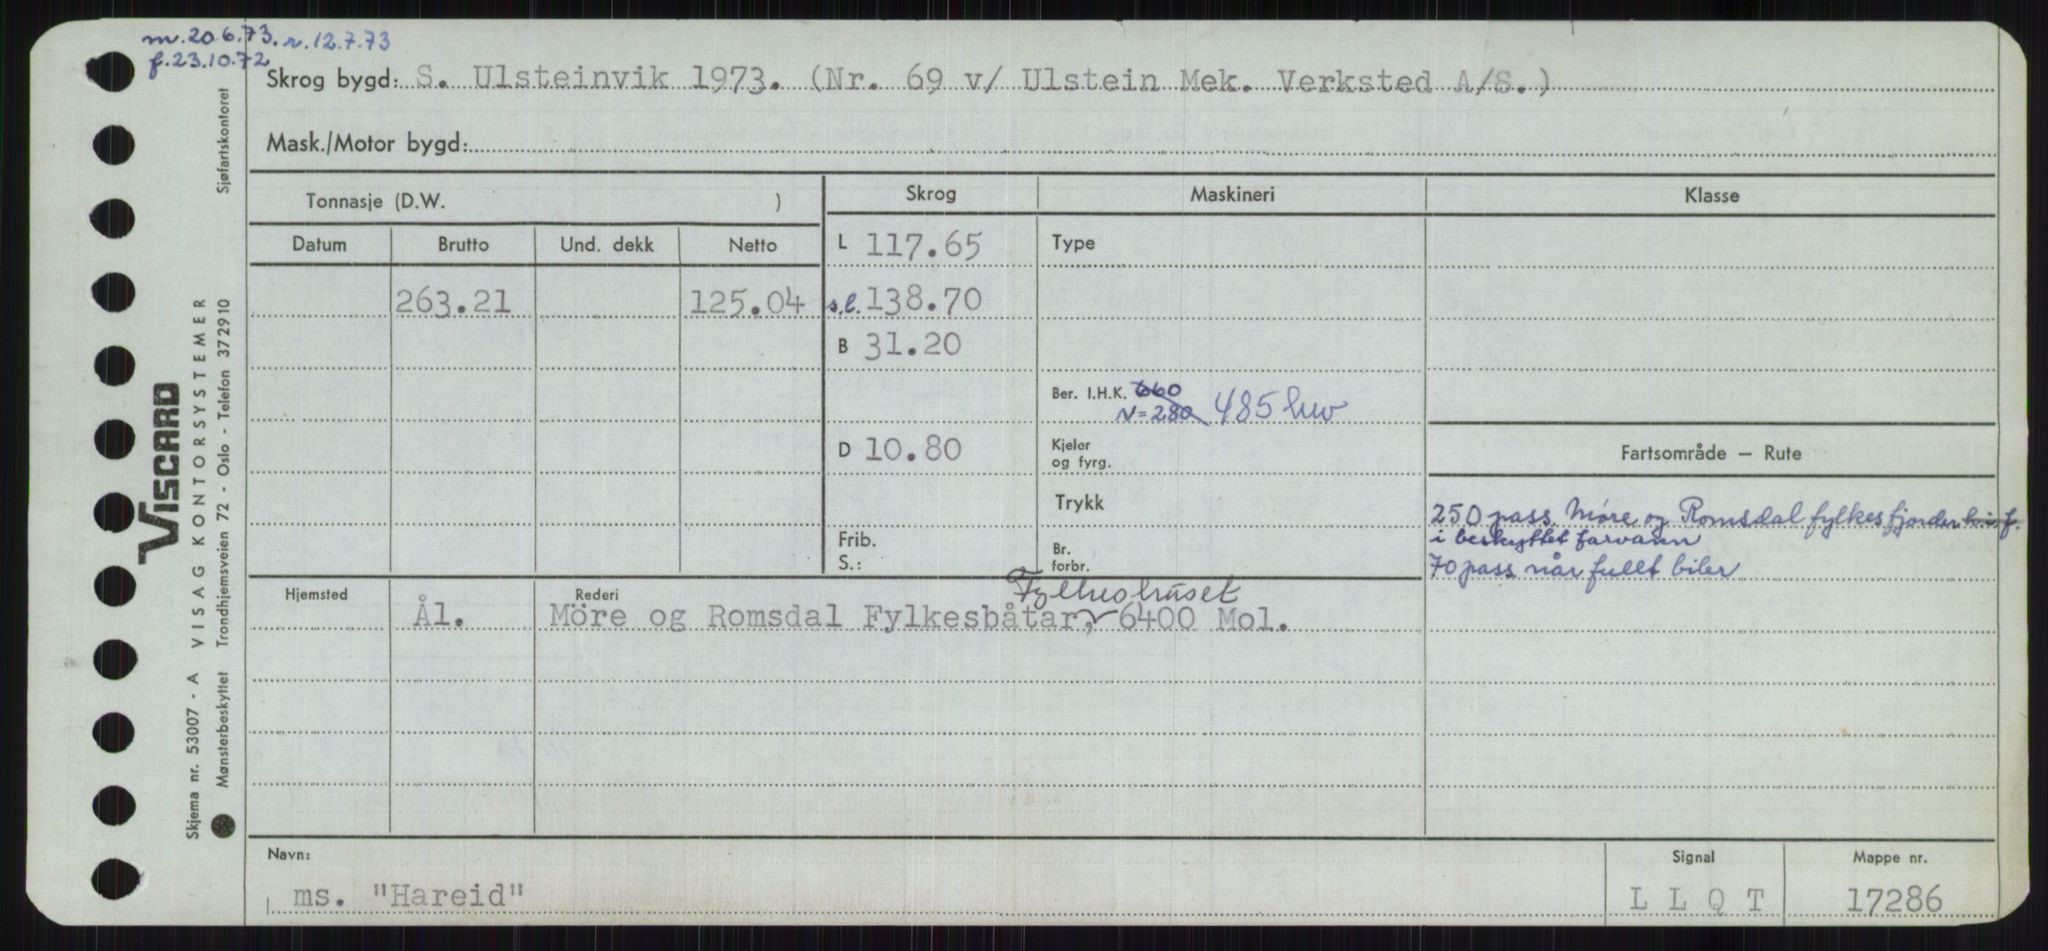 m. 20.6.73. r. 12.7.73
f. 23.10.72
Skrog bygd: S. Ulsteinvik 1973. (Nr. 69 v/ Ulstein Mek. Verksted A/S.)
Mask./Motor bygd:
Tonnasje (D.W. )
Skrog
Maskineri
Klasse
Datum Brutto Und. dekk Netto
L 117.65
Type
263.21 125.04 s.l. 138.70
B 31.20
Ber. I.H.K. 660
N = 280 485 hw
D 10.80
Kjeler
og fyrg.
Fartsområde – Rute
Trykk
250 pass. Møre og Romsdal fylkes fjorder h.i.f.
i beskyttet farvann
Frib.
S.:
Br.
forbr.
70 pass når fullt biler
Hjemsted Rederi Fylkeshuset
Ål. Möre og Romsdal Fylkesbåtar, 6400 Mol.
Navn: Signal Mappe nr.
ms. "Hareid" L L Q T 17286
VISCARD
Skjema nr. 53007 - A VISAG KONTORSYSTEMER
Mønsterbeskyttet Trondhjemsveien 72 - Oslo - Telefon 372910 Sjøfartskontoret